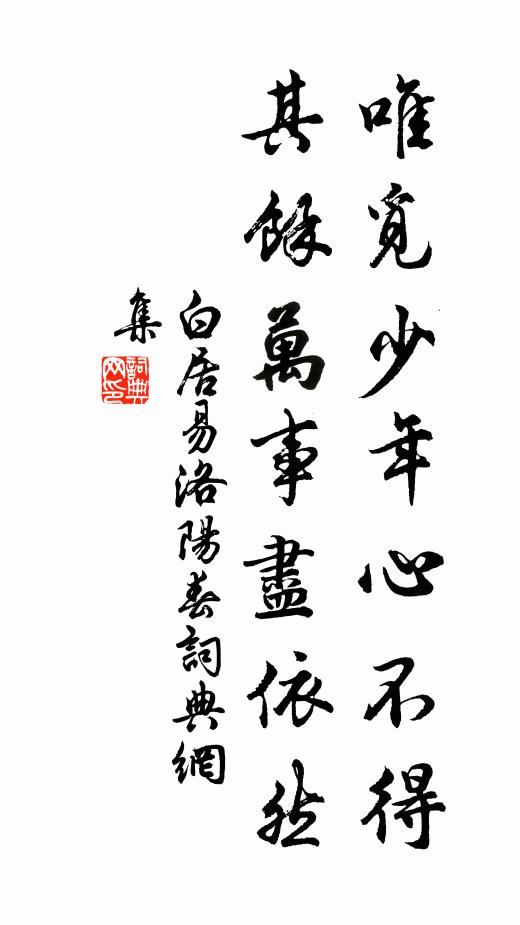 唯覓少年心不得
其餘萬事盡依然
白居易洛陽春詞典網
集
詞典網印